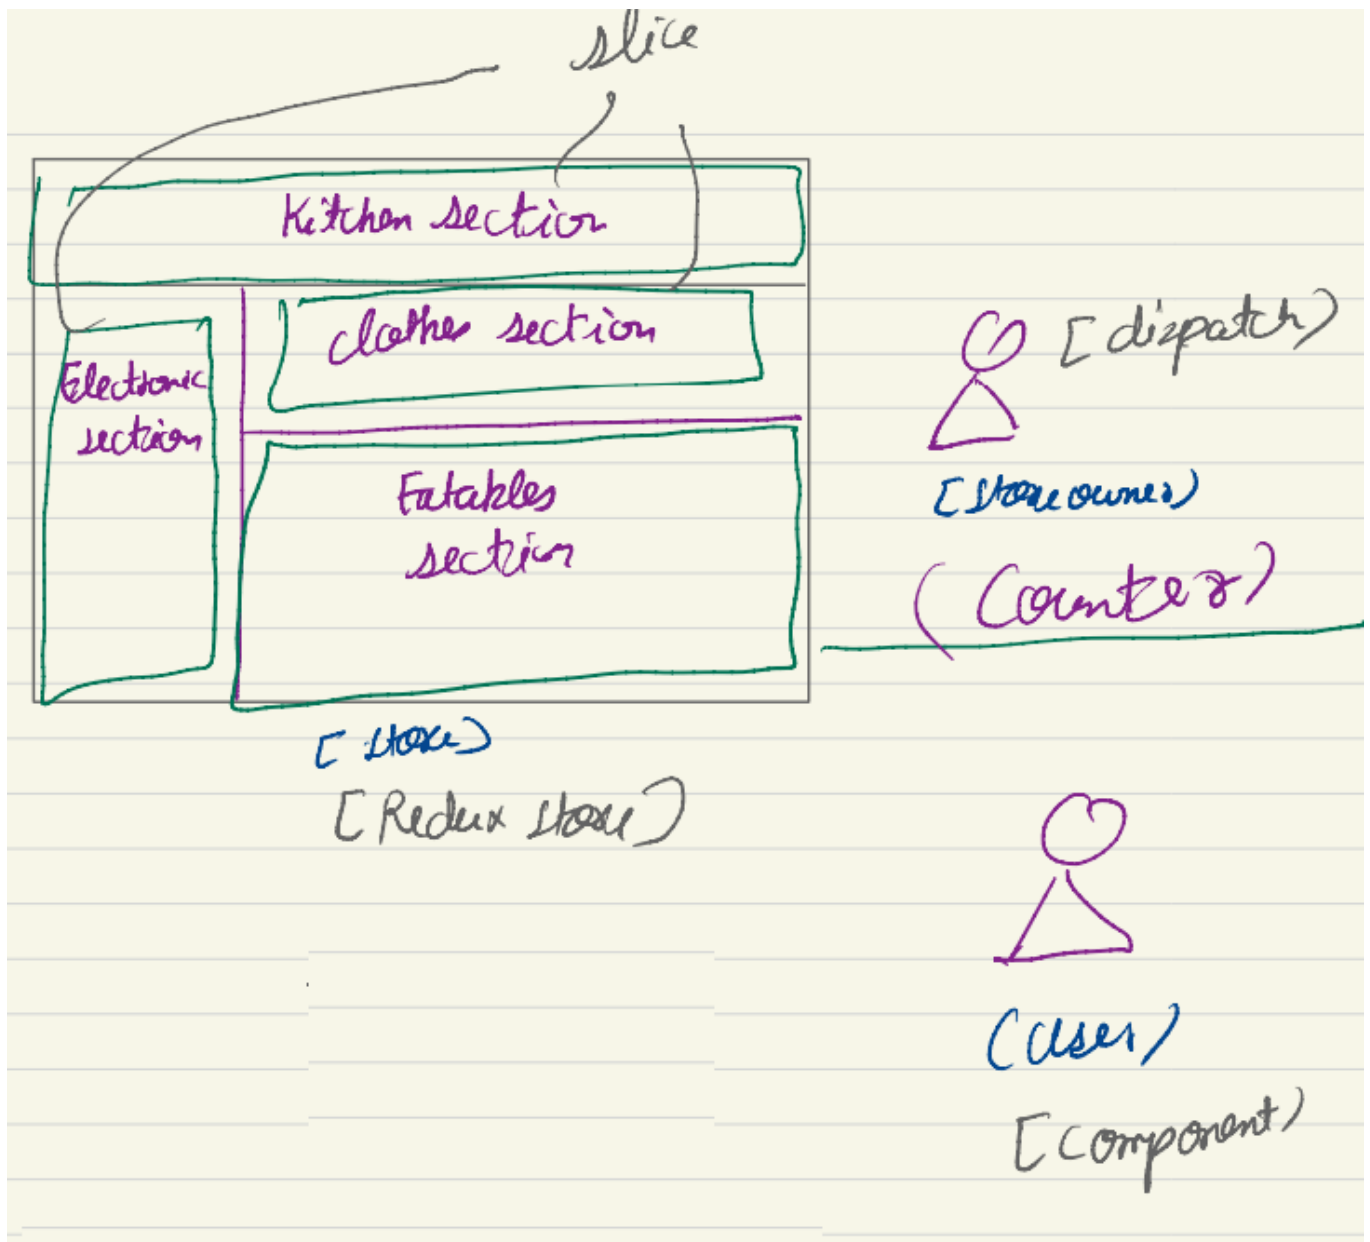 slice
Kitchen section
clothes section
Electronic
section
Eatables
section
[dispatch]
[storeowner]
(Counter)
[store]
[Redux store]
(User)
[component]